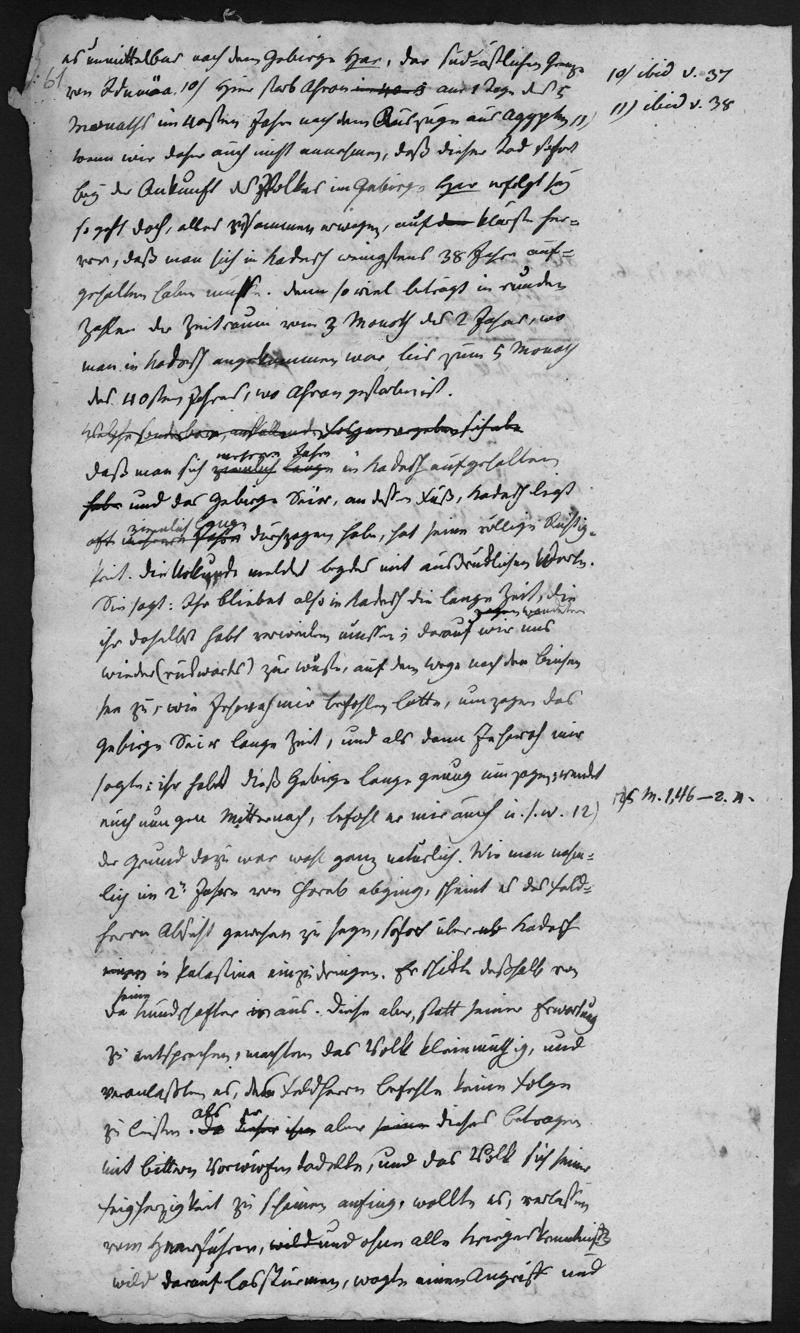 es unmittelbar nach dem Gebirge Har, der südöstlichen Grenze
61
von Idumäa. 10) Hier starb Ahron im 40 am 1 Tage des 5
10) ibid v. 37
Monaths im 40sten Jahre nach dem Auszuge aus Agypten 11)
11) ibid v. 38
wenn wir daher auch nicht annehmen, daß dieser Tod sofort
bey der Ankunft des Volkes im Gebirge Har erfolgt sey
so geht doch, alles zusammen erwogen, auf klarste her=
vor, daß man sich in Kadesch wenigstens 38 Jahre auf=
gehalten haben müsse. Denn so viel beträgt in runden
Zahlen der Zeitraum vom 3 Monath des 2 Jahres, wo
man in Kadesch angekommen war, bis zum 5 Monath
des 40sten Jahres, wo Ahron gestorben ist.
Welche sonderbare, auffallende Folgen ergeben sich
daß man sich ziemlich lange mehrere Jahre in Kadesch aufgehalten
habe und das Gebirge Seir, an dessen Fuß, Kadesch liegt
oft mehrere Jahre ziemlich lange durchzogen habe, hat seine völlige Richtig=
keit. Die Urkunde meldet beydes mit ausdrücklichen Worten.
Sie sagt: Ihr bliebet also in Kadesch die lange Zeit, die
ihr daselbst habt verweilen müssen; darauf zogen wir uns
wieder (rückwärts) zur Wüste, auf dem Wege nach dem Binsen
see zu, wie Jehovah mir befohlen hatte, umzogen das
Gebirge Seir lange Zeit, und als dann Jehovah mir
sagte: ihr habt dieß Gebirge lange genug umzogen; wendet
euch nun gen Mitternach, befohl er mir auch u.s.w. 12)
5 M. 1,46—2.4.
der Grund dazu war wohl ganz natürlich. Wie man nehm=
lich im 2n Jahre von Horeb abging, scheint es des Feld=
herrn Absicht gewesen zu seyn, sofort über Kadesch
in Palästina einzudringen. Er schikte deßhalb von
da seine Kundschafter aus. Diese aber, statt seiner Erwartung
zu entsprechen, machten das Volk kleinmüthig, und
veranlaßten es, des Feldherrn Befehle keine Folge
zu leisten. als er aber dieses betragen
mit bittern Vorwürfen tadelte, und das Volk sich seiner
Feigherzigkeit zu schämen anfing, wollte es, verlassen
vom Heerführer, wild und ohne alle Kriegeskenntniß
wild darauf losstürmen, wagte einen Angriff und